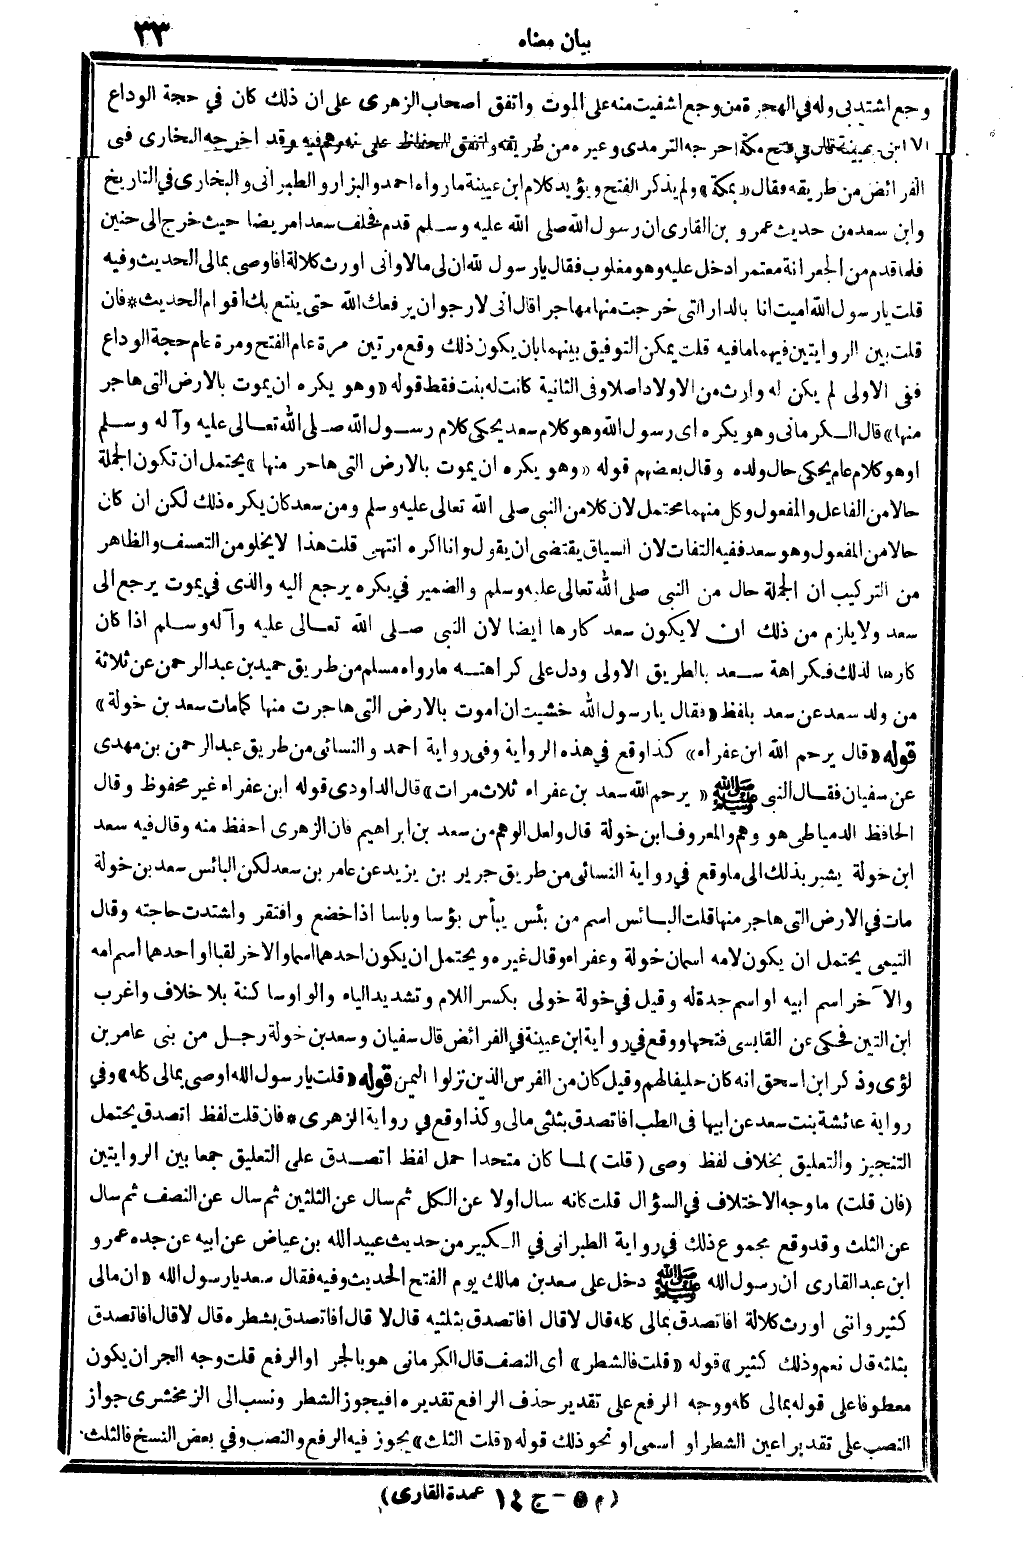 بيان معناه ٣٣
وجع اشتد بى وله فى الهجرة من وجع اشفيت منه على الموت واتفق اصحاب الزهرى على ان ذلك كان في حجة الوداع
الا ابن عيينة قال فى فتح مكة اخرجه الترمدى وغيره من طريقه واتفق الحفاظ على نه وهم فيه وقد اخرجه البخارى فى
الفرائض من طريقه فقال «بمكة» ولم يذكر الفتح ويؤيد كلام ابن عيينة مارواه احمد والبزار والطبرانى والبخارى في التاريخ
وابن سعد من حديث عمرو بن القارى ان رسول الله صلى الله عليه وسلم قدم فخلف سعدا مريضا حيث خرج الى حنين
فلما قدم من الجعرانة معتمرا دخل عليه وهو مغلوب فقال يارسول لله ان لى مالا وانى اورث كلالة افاوصى بمالى الحديث وفيه
قلت يارسول الله اميت انا بالدار التى خرجت منها مهاجرا قال انى لارجو ان يرفعك الله حتى ينتفع بك اقوام الحديث * فان
قلت بين الروايتين فيهما مافيه قلت يمكن التوفيق بينهما بان يكون ذلك وقع مرتين مرة عام الفتح ومرة عام حجة الوداع
ففى الاولى لم يكن له وارث من الاولاد اصلا وفى الثانية كانت له بنت فقط قوله «وهو يكره ان يموت بالارض التى هاجر
منها» قال الكرمانى وهو يكره اى رسول الله وهو كلام سعد يحكى كلام رسول الله صلى الله تعالى عليه وآله وسلم
اوهو كلام عام يحكى حال ولده وقال بعضهم قوله «وهو يكره ان يموت بالارض التى هاجر منها» يحتمل ان تكون الجملة
حالا من الفاعل والمفعول وكل منهما محتمل لان كلا من النبى صلى الله تعالى عليه وسلم ومن سعد كان يكره ذلك لكن ان كان
حالا من المفعول وهو سعد ففيه التفات لان السياق يقتضى ان يقول وانا اكره انتهى قلت هذا لا يخلو من التعسف والظاهر
من التركيب ان الجملة حال من النبى صلى الله تعالى عليه وسلم والضمير في يكره يرجع اليه والذى في يموت يرجع الى
سعد ولا يلزم من ذلك ان لا يكون سعد كارها ايضا لان النبى صلى الله تعالى عليه وآله وسلم اذا كان
كارها لذلك فكراهة سعد بالطريق الاولى ودل على كراهته مارواه مسلم من طريق حميد بن عبد الرحمن عن ثلاثة
من ولد سعد عن سعد بلفظ «فقال يارسول الله خشيت ان اموت بالارض التى هاجرت منها كمامات سعد بن خولة»
قوله «قال يرحم الله ابن عفراء» كذا وقع في هذه الرواية وفى رواية احمد والنسائى من طريق عبد الرحمن بن مهدى
عن سفيان فقال النبى ﷺ «يرحم الله سعد بن عفراء ثلاث مرات» قال الداودى قوله ابن عفراء غير محفوظ وقال
الحافظ الدمياطى هو وهم والمعروف ابن خولة قال ولعل الوهم من سعد بن ابراهيم فان الزهرى احفظ منه وقال فيه سعد
ابن خولة يشير بذلك الى ماوقع في رواية النسائى من طريق جرير بن يزيد عن عامر بن سعد لكن البائس سعد بن خولة
مات في الارض التى هاجر منها قلت البائس اسم من بئس يبأس بؤسا وباسا اذا خضع وافتقر واشتدت حاجته وقال
التيمى يحتمل ان يكون لامه اسمان خولة وعفراء وقال غيره ويحتمل ان يكون احدهما اسما والاخر لقبا او احدهما اسم امه
والآخر اسم ابيه او اسم جدة له وقيل في خولة خولى بكسر اللام وتشديد الياء والواو ساكنة بلا خلاف واغرب
ابن التين فحكى عن القابسى فتحها ووقع في رواية ابن عيينة في الفرائض قال سفيان وسعد بن خولة رجل من بنى عامر بن
لؤى وذكر ابن اسحق انه كان حليفا لهم وقيل كان من الفرس الذين نزلوا اليمن قوله «قلت يارسول الله اوصى بمالى كله» وفي
رواية عائشة بنت سعد عن ابيها فى الطب افاتصدق بثلثى مالى وكذا وقع في رواية الزهرى * فان قلت لفظ اتصدق يحتمل
التنجيز والتعليق بخلاف لفظ وصى (قلت) لما كان متحدا حمل لفظ اتصدق على التعليق جمعا بين الروايتين
(فان قلت) ماوجه الاختلاف في السؤال قلت كانه سال اولا عن الكل ثم سال عن الثلثين ثم سال عن النصف ثم سال
عن الثلث وقد وقع مجموع ذلك في رواية الطبرانى في الكبير من حديث عبيد الله بن عياض عن ابيه عن جده عمرو
ابن عبد القارى ان رسول الله ﷺ دخل على سعد بن مالك يوم الفتح الحديث وفيه فقال سعد يارسول الله «ان مالى
كثير واننى اورث كلالة افاتصدق بمالى كله قال لا قال افاتصدق بثلثيه قال لا قال افاتصدق بشطره قال لا قال افاتصدق
بثلثه قال نعم وذلك كثير» قوله «قلت فالشطر» اى النصف قال الكرمانى هو بالجر او الرفع قلت وجه الجر ان يكون
معطوفا على قوله بمالى كله ووجه الرفع على تقدير حذف الرافع تقديره افيجوز الشطر ونسب الى الزمخشرى جواز
النصب على تقدير اعين الشطر او اسمى او نحو ذلك قوله «قلت الثلث» يجوز فيه الرفع والنصب وفي بعض النسخ فالثلث.
(م ٥ - ج ١٤ عمدة القارى)